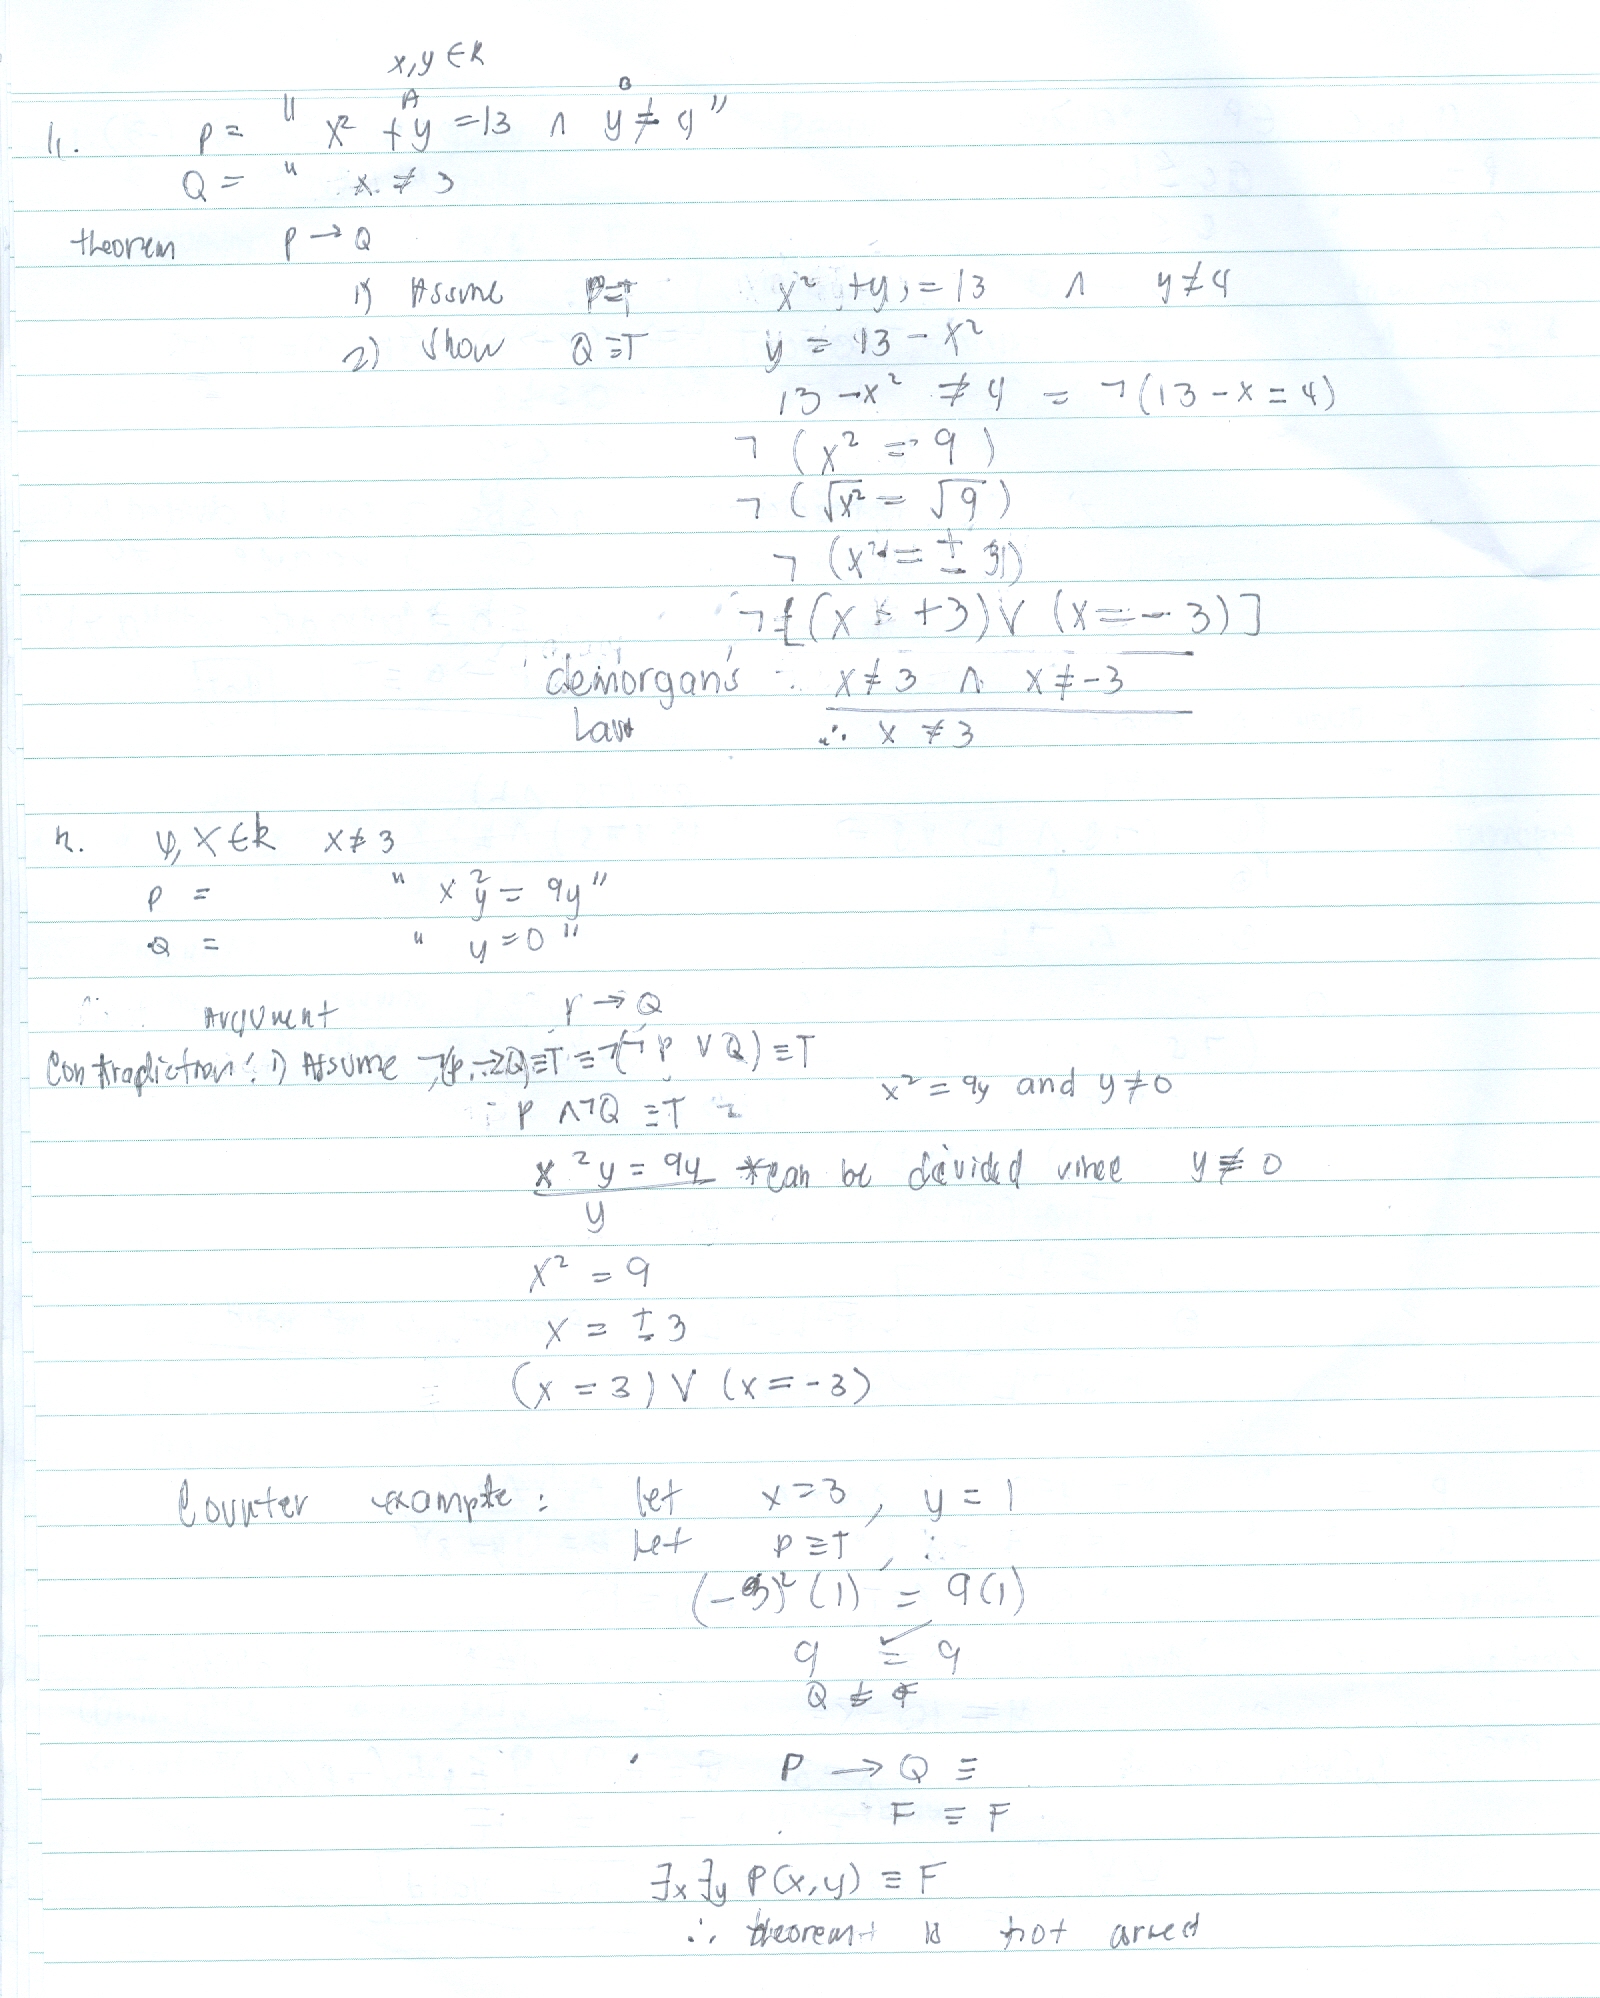 x, y ∈ R
11. P = " x² + y = 13 ∧ y ≠ 4 "
A B
Q = " x ≠ 3
theorem P → Q
1) Assume P=T x² + y = 13 ∧ y ≠ 4
2) Show Q ≡ T y = 13 - x²
13 - x² ≠ 4 = ¬(13 - x = 4)
¬ (x² = 9)
¬ (√x² = √9)
¬ (x² = ± 3)
¬[(x = +3) ∨ (x = - 3)]
demorgan's ∴ x ≠ 3 ∧ x ≠ -3
Law ∴ x ≠ 3
y, x ∈ R x ≠ 3
P = " x²y = 9y "
Q = " y = 0 "
Argument P → Q
Contradiction: 1) Assume ¬(P → Q) ≡ T ≡ ¬(¬P ∨ Q) ≡ T
P ∧ ¬Q ≡ T x² = 9y and y ≠ 0
x²y = 9y *can be divided since y ≠ 0
y
x² = 9
x = ± 3
(x = 3) ∨ (x = -3)
Counter example: let x = 3, y = 1
Let P ≡ T, ∴
(-3)² (1) = 9(1)
9 = 9 ✓
P → Q ≡
F ≡ F
∃x ∃y P(x, y) ≡ F
∴ theorem is not